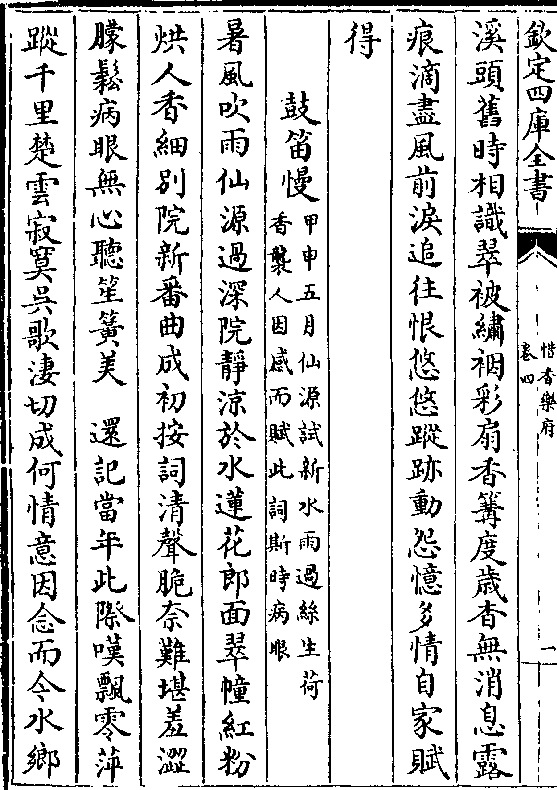 欽定四庫全書
惜香樂府
卷四
一
溪頭舊時相識翠被繡裀彩扇香篝度歲杳無消息露
痕滴盡風前淚追往恨悠悠蹤跡動怨憶多情自家賦
得
鼓笛慢
甲申五月仙源試新水雨過絲生荷
香襲人因感而賦此詞斯時病眼
暑風吹雨仙源過深院靜涼於水蓮花郎面翠幢紅粉
烘人香細別院新番曲成初按詞清聲脆奈難堪羞澀
朦鬆病眼無心聽笙簧美　還記當年此際嘆飄零萍
蹤千里楚雲寂寞吳歌淒切成何情意因念而今水鄉